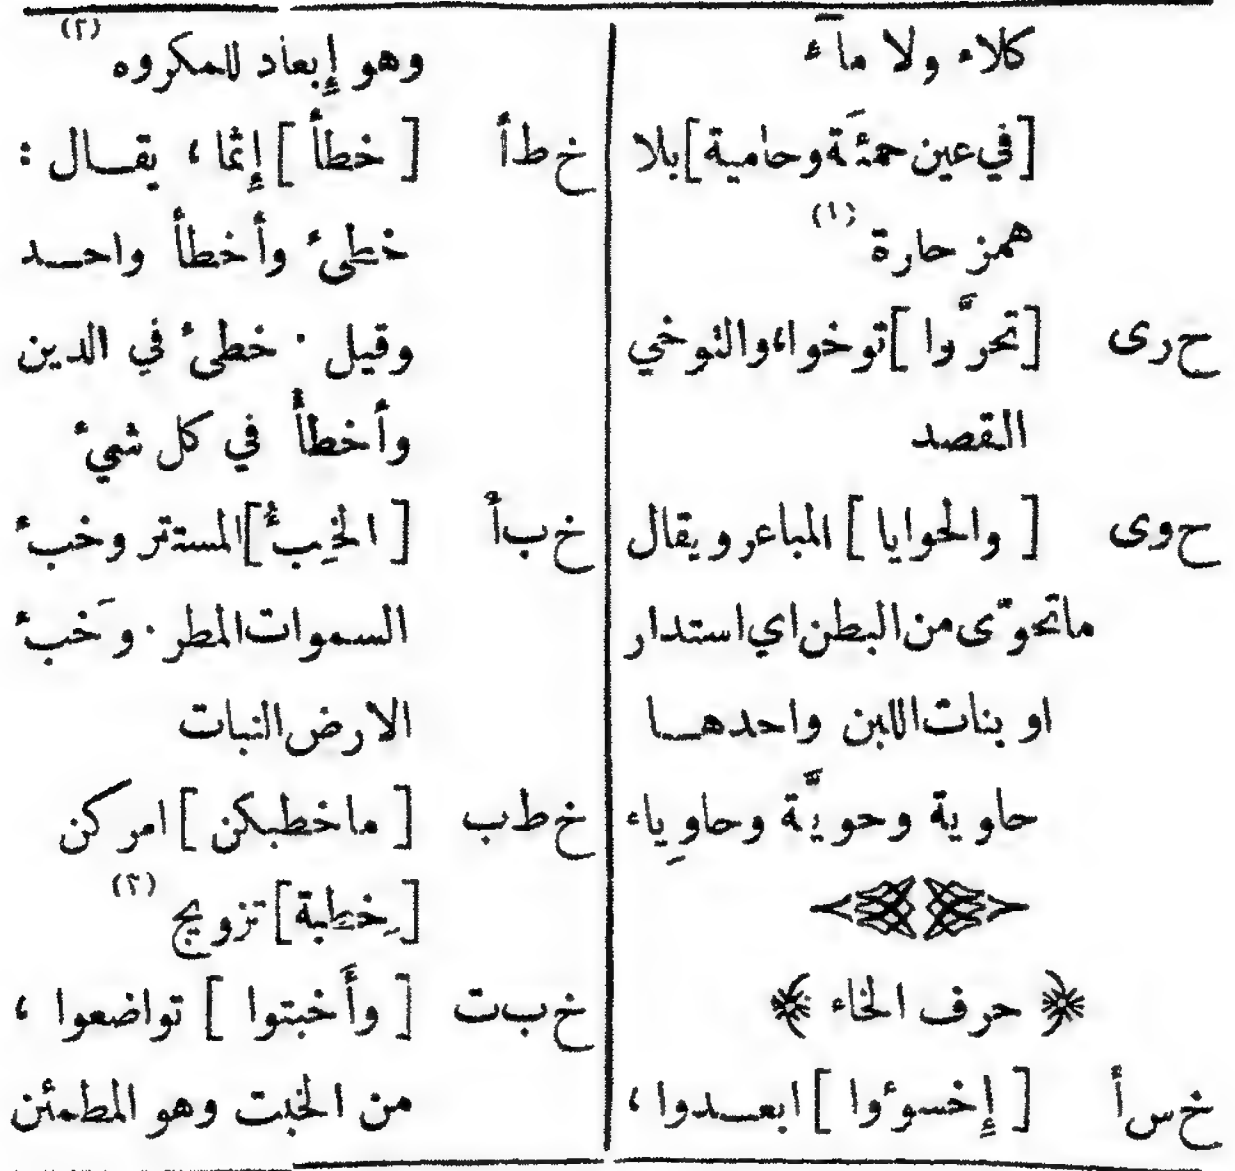 كلاء ولا مآء
[في عين حمئَة وحامية] بلا
همز حارة (١)
ح رى [تحرَّوا] توخوا، والتوخي
القصد
ح وى [والحوايا] المباعر ويقال
ما تحوّى من البطن اي استدار
او بنات اللبن واحدهـا
حاوية وحويَّة وحاوِياء
﴿ حرف الخاء ﴾
خ س أ [إِخسوءُوا] ابعـدوا ،
وهو إِبعاد للمكروه (٢)
خ ط أ [خطأً] إِثما ، يقـال :
خطِىء وأَخطأَ واحـد
وقيل . خطىء في الدين
وأَخطأَ في كل شيء
خ ب أ [الخِبءُ] المستتر وخبء
السموات المطر . وَخبء
الارض النبات
خ ط ب [ما خطبكن] امركن
[خِطبة] تزويج (٣)
خ ب ت [وأَخبتوا] تواضعوا ،
من الخبت وهو المطمئن